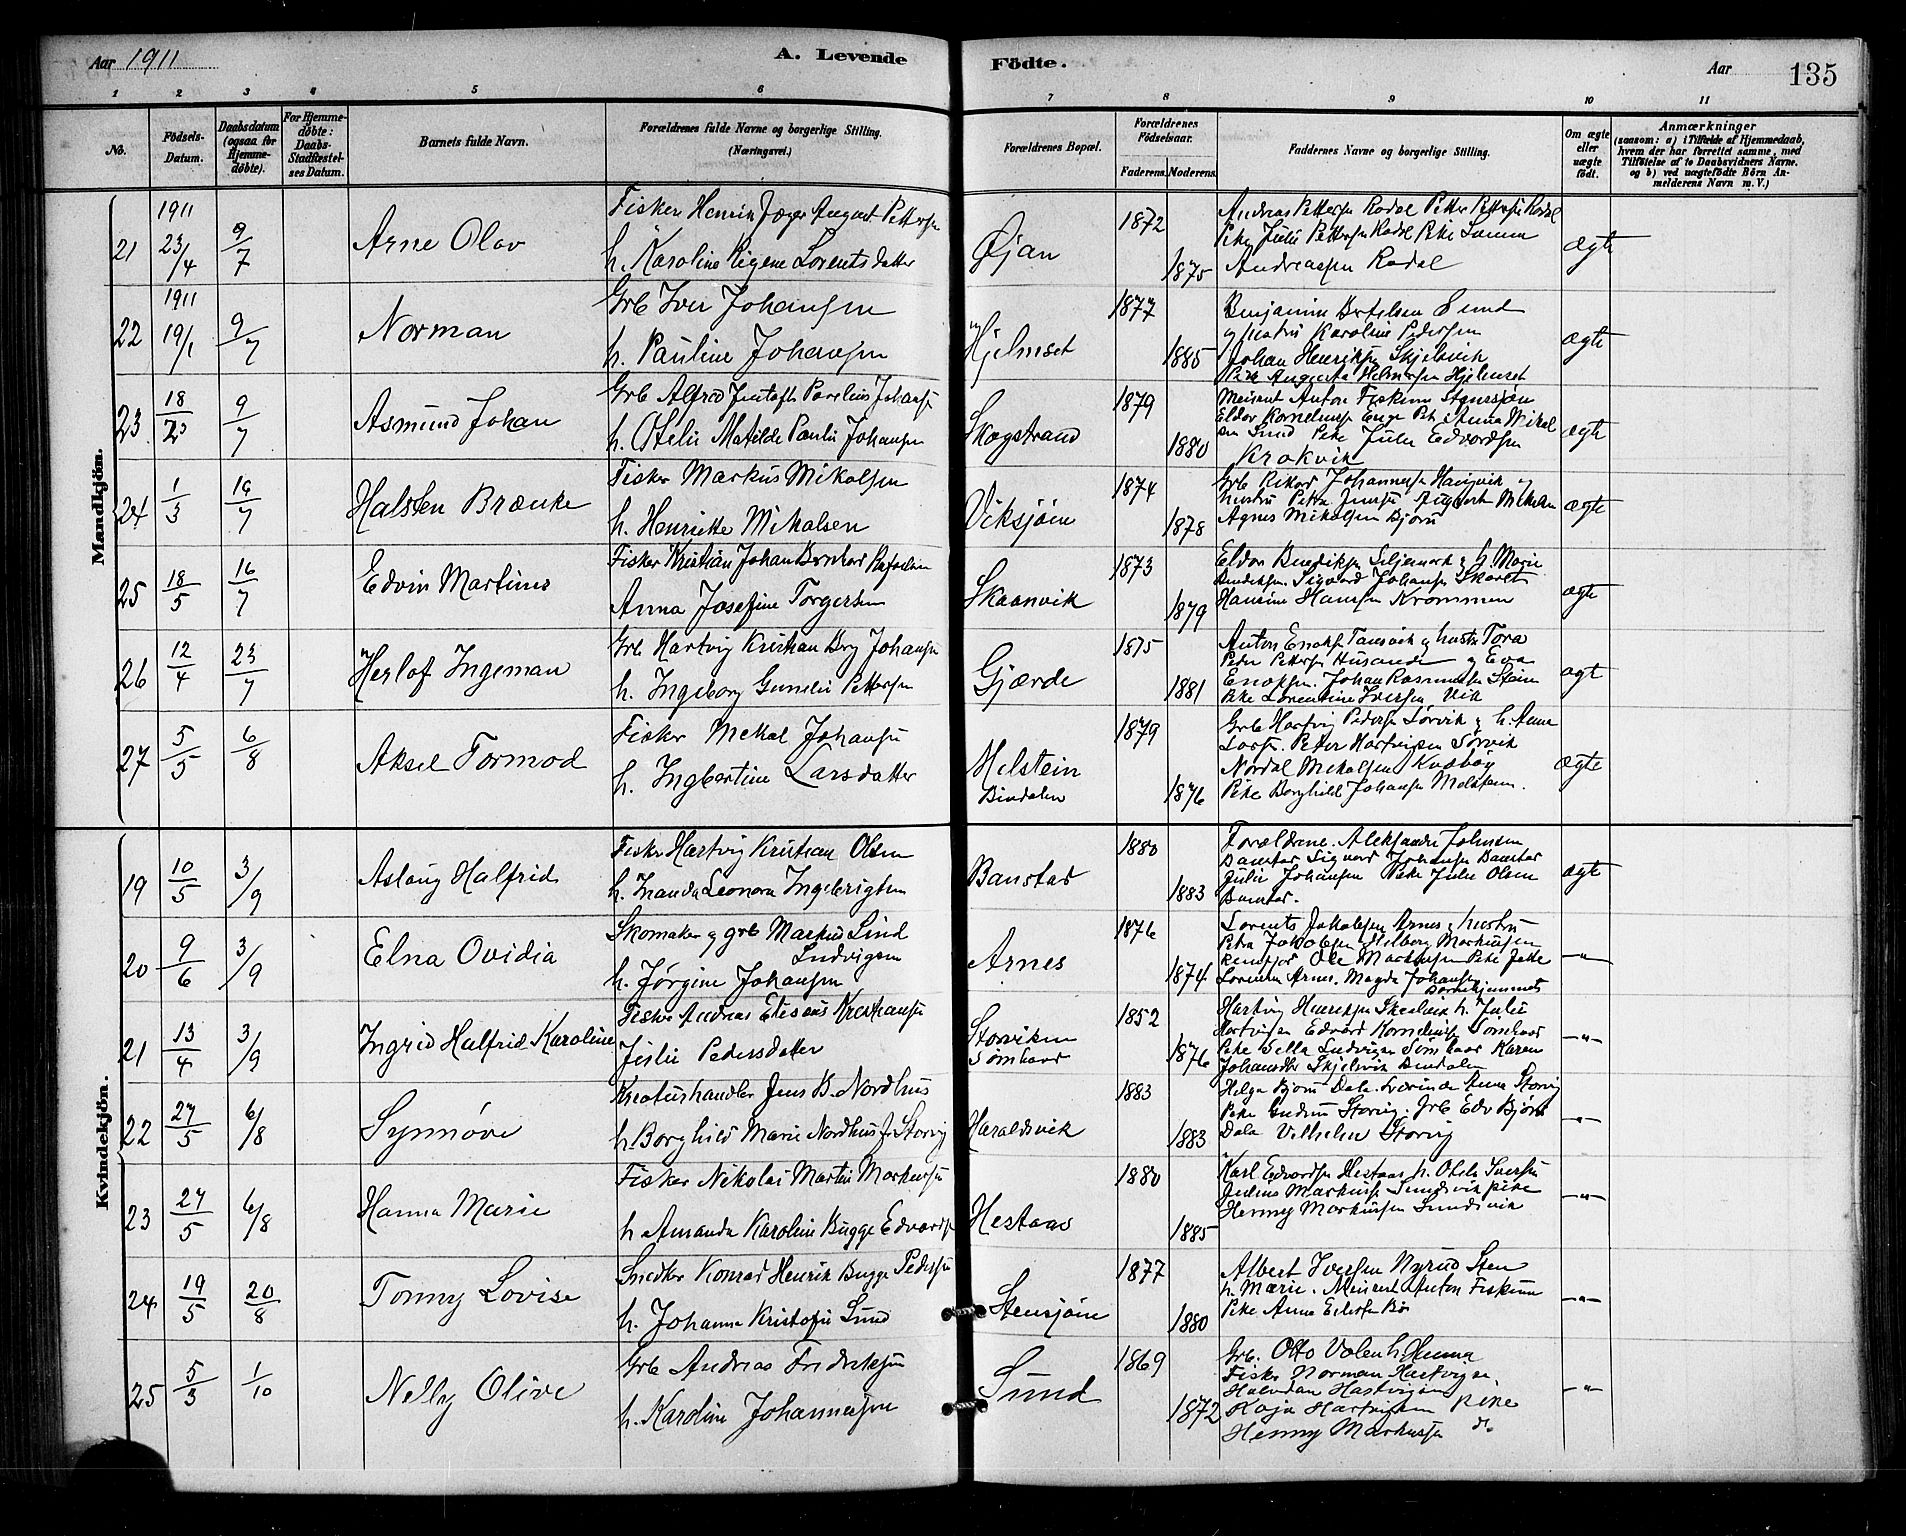 Aar 1911
A. Levende
Födte.
Aar
135
1 2 3 4 5 6 7 8 9 10 11
No.
Födsels-Datum.
Daabsdatum (ogsaa for Hjemme-döbte).
For Hjemme-döbte: Daabs-Stadfæstel-ses Datum.
Barnets fulde Navn.
Forældrenes fulde Navne og borgerlige Stilling. (Næringsvei.)
Forældrenes Bopæl.
Forældrenes Födselsaar.
Faderens. Moderens.
Faddernes Navne og borgerlige Stilling.
Om ægte eller uægte födt.
Anmærkninger
(saasom: a) i Tilfælde af Hjemmedaab, hvem der har forrettet samme, med Tilföielse af to Daabsvidners Navne. og b) ved uægtefödte Börn An-melderens Navn m. V.)
Mandkjön.
21 1911 23/4 9/7 Arne Olav
Fisker Henrik Jæger August Pettersen
h. Karoline Lorentsdatter
Øjan 1872 1875
Andreas Pettersen Rodal Petter Pettersen Rodal
Julie Pettersen Rodal
Andreassen Rodal
ægte
22 1911 19/1 9/7 Norman
Grb Iver Johansen
h. Pauline Johansen
Hjelmset 1877 1885
Benjamin Bertelsen Sund
Karoline Pedersen
Johan Henriksen Skjelsvik
Pike Augusta Helmersen Hjelmset
ægte
23 18/2 9/7 Asmund Johan
Grb Alfred Johansen
h. Otelie Matilde Paulie Johansen
Skogstrand 1879 1880
Meierist Anton Fiskum Stensjøen
Eldor Kornelius Enge Pike Anna Mikal
sen Sund Pike Julie Edvardsen
Krokvik
ægte
24 1/3 16/7 Halsten Brænke
Fisker Markus Mikalsen
h. Henrikke Mikalsen
Viksjøen 1874 1878
Grb Rikard Johannesen
hustru Petra Jensen August Mikalsen
Agnes Mikalsen Bjøru
ægte
25 18/5 16/7 Edvin Martinus
Fisker Kristian Johan Bernhard
Anna Josefine Torgersen
Skaanvik 1873 1879
Eldor Bendiksen h Marie
Bendiksen. Sigvard Johansen Skaret
Hansine Hansen Krommen
ægte
26 12/4 23/7 Herlof Ingeman
Grb Hartvig Kristian Johansen
h. Ingeborg Gunelie Pettersen
Gjærde 1875 1881
Anton Enoksen hustr Tora
Peder Pettersen Husande og Eva
Enoksen. Johan Rasmussen Stein
Pike Lorentine Iversen Vik
ægt
27 5/5 6/8 Aksel Tormod
Fisker Mekal Johansen
h. Ingbertine Larsdatter
Helstein
Bindalen 1879 1876
Grb Hartvig Pedersen Sørvik og h. Anne
Larsen. Peter Hartvigsen Sørvik
Nordal Mikalsen Kvæbøy
Pike Borghild Johansen
ægte
Kvindekjön.
19 10/5 3/9 Aslaug Halfrid
Fisker Hartvig Kristian Olsen
h. Leonora Ingebrigtsen
Banstad 1880 1883
Forældrene. Aleksander Johnsen
Banstad Sigvard Johansen Banstad
Julie Johansen Pike Julie Olsen
Banstad.
ægte
20 9/6 3/9 Elna Ovidia
Skomaker og grb Markus Lind
Ludvigsen
h. Jørgine Johansen
Arnes 1876 1874
Lorents Jakobsen Arnes og hustru
Petra Jakobsen Helberg Markussen
Ole Markussen Pike
Arnes. Magda Johansen
Barnehjemmet
-"-
21 13/4 3/9 Ingrid Halfrid Karoline
Fisker Andreas Eliseus Kristiansen
Julie Pedersdatter
Storviken
Sømhaar 1852 1876
Hartvig Henriksen h. Julie
Hartvigsen Edvard Kornelius Sømhaar
Pike Sella Ludvigsen Sømhaar Karen
Johansdtr Skjelsvik Bindalen
-"-
22 27/5 6/8 Synnøve
Kreaturhandler Jens B. Nordhus
h. Borghild Marie Nordhus f. Storvig
Haraldsvik 1883 1883
Helga Bjøru Dala. Anna Storvig
Pike Gudrun Storvig. Grb Edv Bjøru
Dala Vilhelm Storvig
-"-
23 27/5 6/8 Hanna Marie
Fisker Nikolai Martin Markussen
h Amanda Karoline Bugge Edvardsen
Hestaas 1880 1885
Karl Edvardsen Hestaas h. Otelie Iversen
Julius Markussen Sundsvik pike
Henny Markussen Sundsvik
-"-
24 19/5 20/8 Tonny Lovise
Snedker Konrad Henrik Bugge Pedersen
h. Johanna Kristofie Sund
Stensjøen 1877 1880
Albert Iversen Nyrud Sten
h. Marie. Meierist Anton Fiskum
Pike Anna
-"-
25 5/3 1/10 Nelly Olive
Grb Andreas Fredriksen
h. Karoline Johannesen
Sund 1869 1872
Grb. Otto Volen h. Hanna
Fisker Norman Hartvigsen
Halvdan Hartvigsen
Kaja Hartvigsen pike
Henny Markussen do
-"-